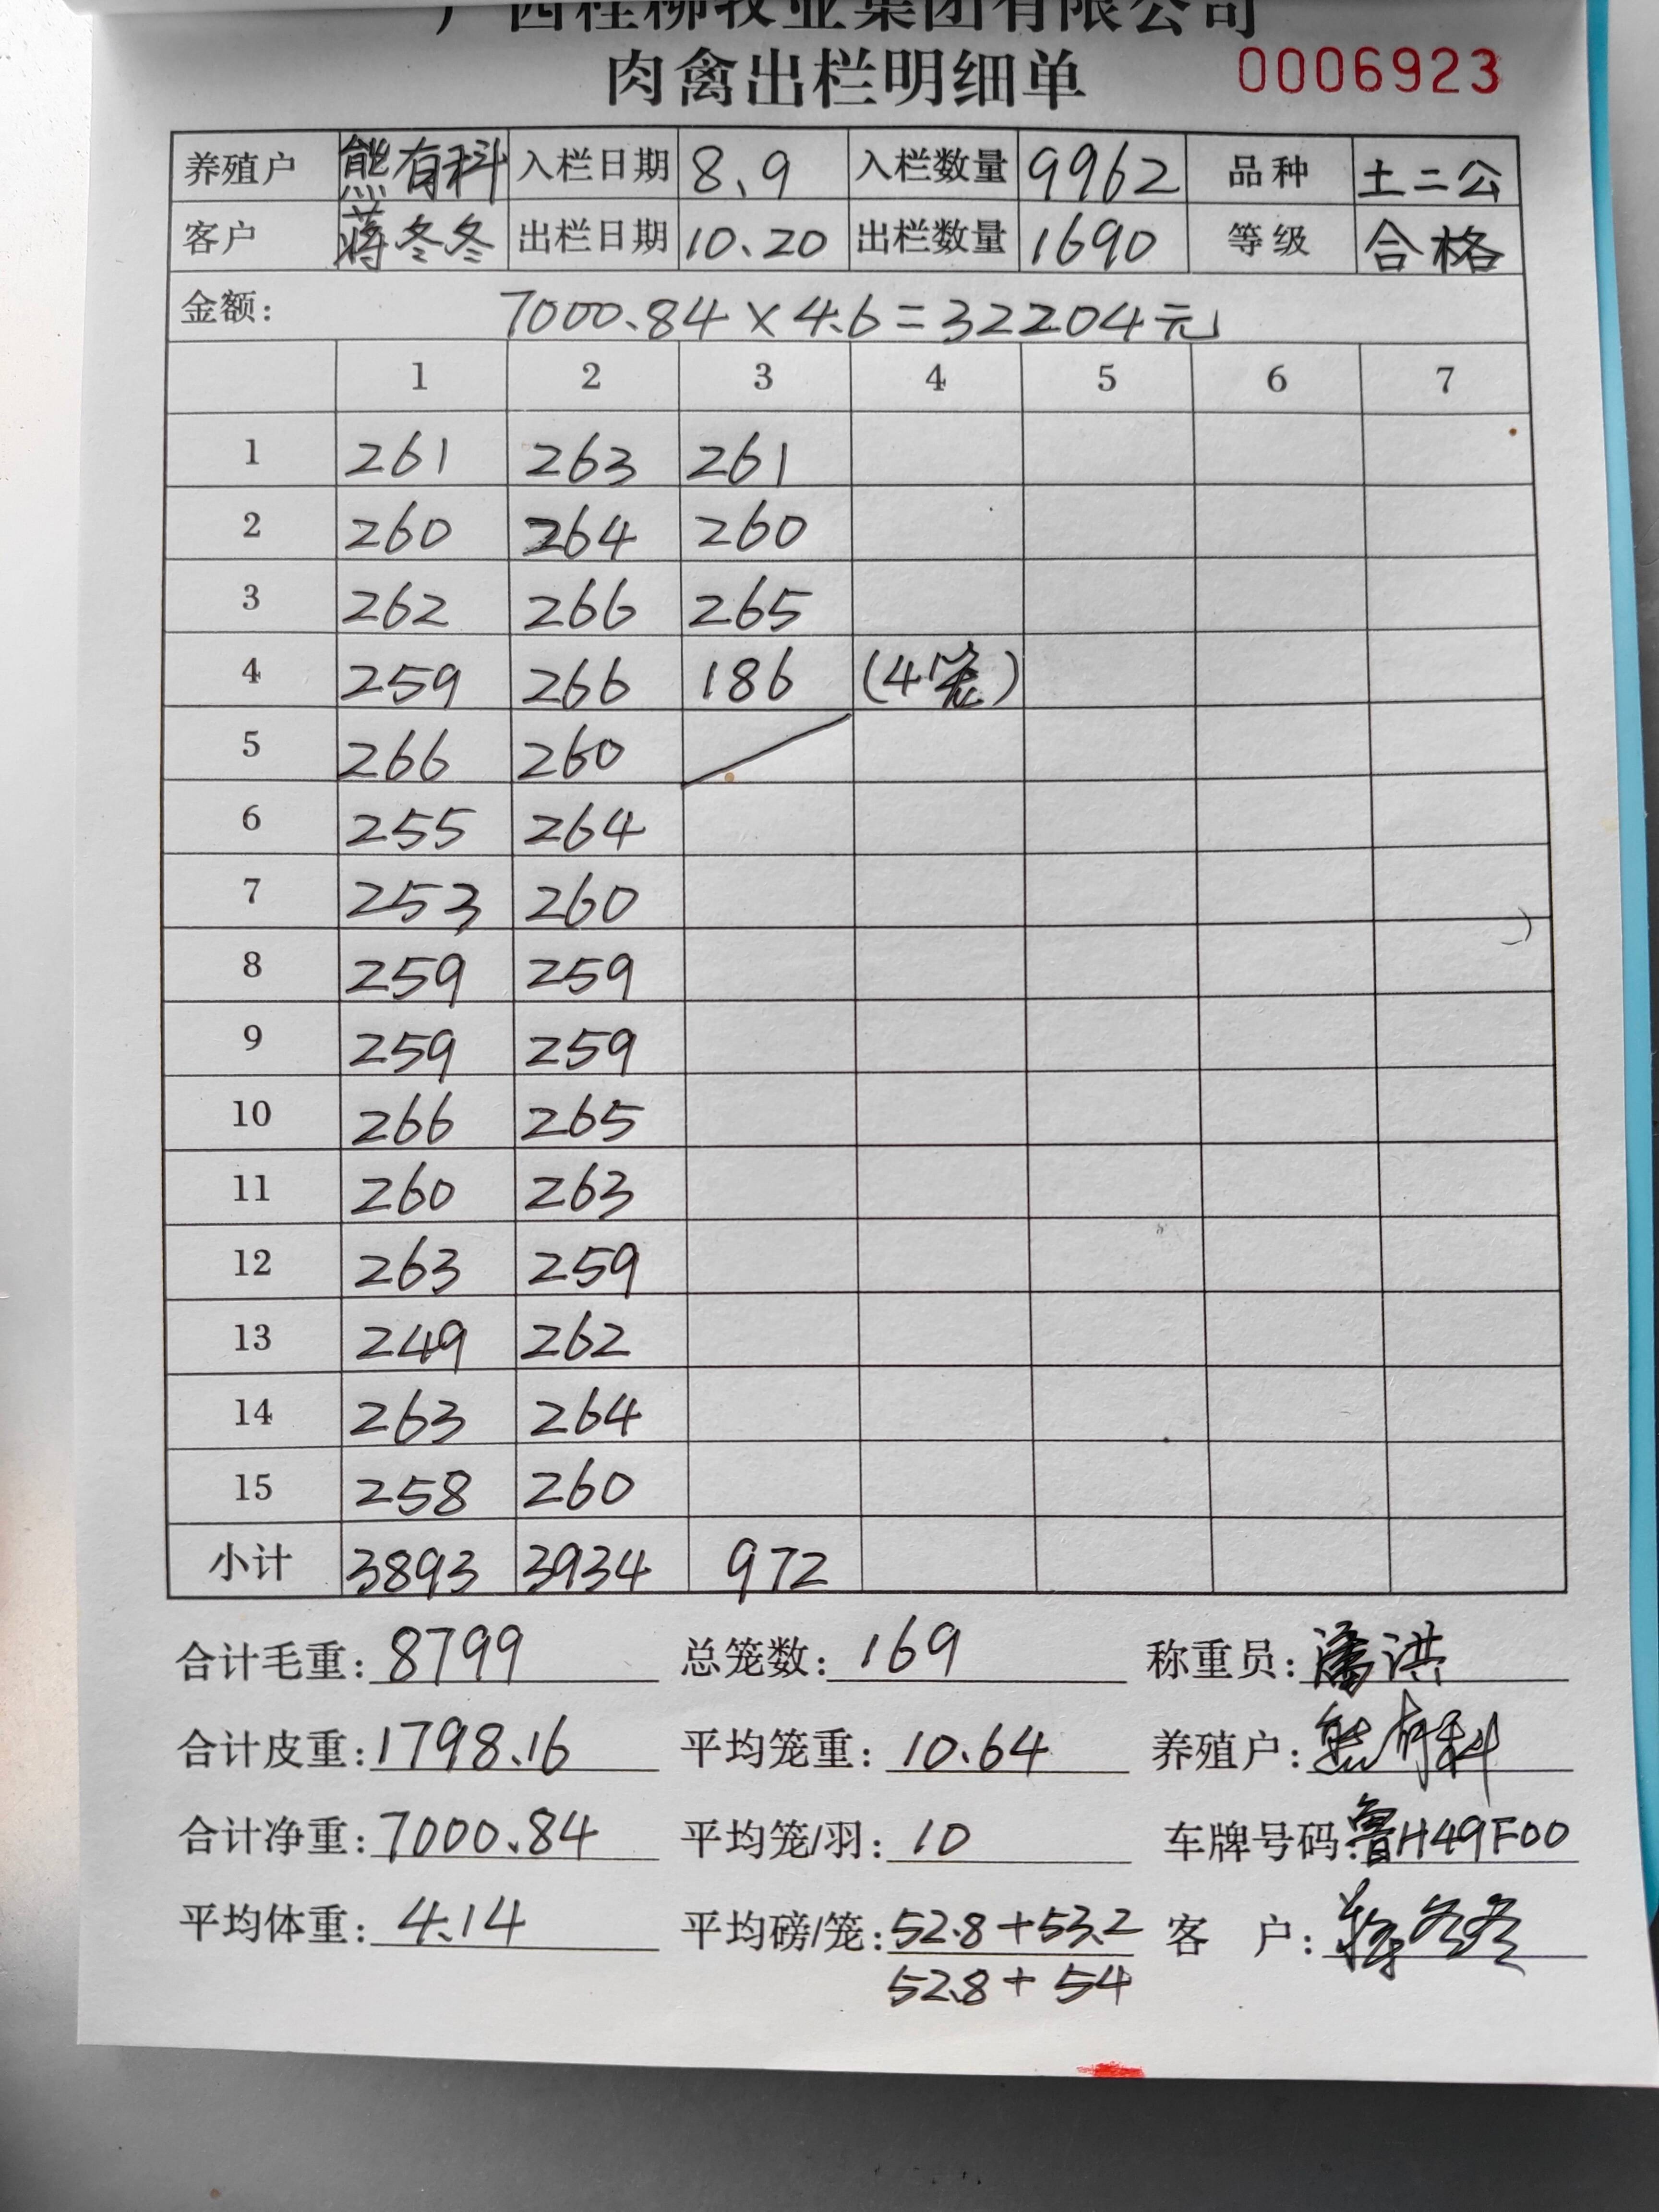 广西桂柳牧业集团有限公司
肉禽出栏明细单 0006923
养殖户 熊有科 入栏日期 8.9 入栏数量 9962 品种 土二公
客户 蒋冬冬 出栏日期 10.20 出栏数量 1690 等级 合格
金额: 7000.84×4.6=32204元
1 2 3 4 5 6 7
1 261 263 261
2 260 264 260
3 262 266 265
4 259 266 186 (4笼)
5 266 260
6 255 264
7 253 260
8 259 259
9 259 259
10 266 265
11 260 263
12 263 259
13 249 262
14 263 264
15 258 260
小计 3893 3934 972
合计毛重: 8799 总笼数: 169 称重员: 潘洪
合计皮重: 1798.16 平均笼重: 10.64 养殖户: 熊有科
合计净重: 7000.84 平均笼/羽: 10 车牌号码: 鲁H49F00
平均体重: 4.14 平均磅/笼: 52.8+53.2 客 户: 蒋冬冬
52.8+54